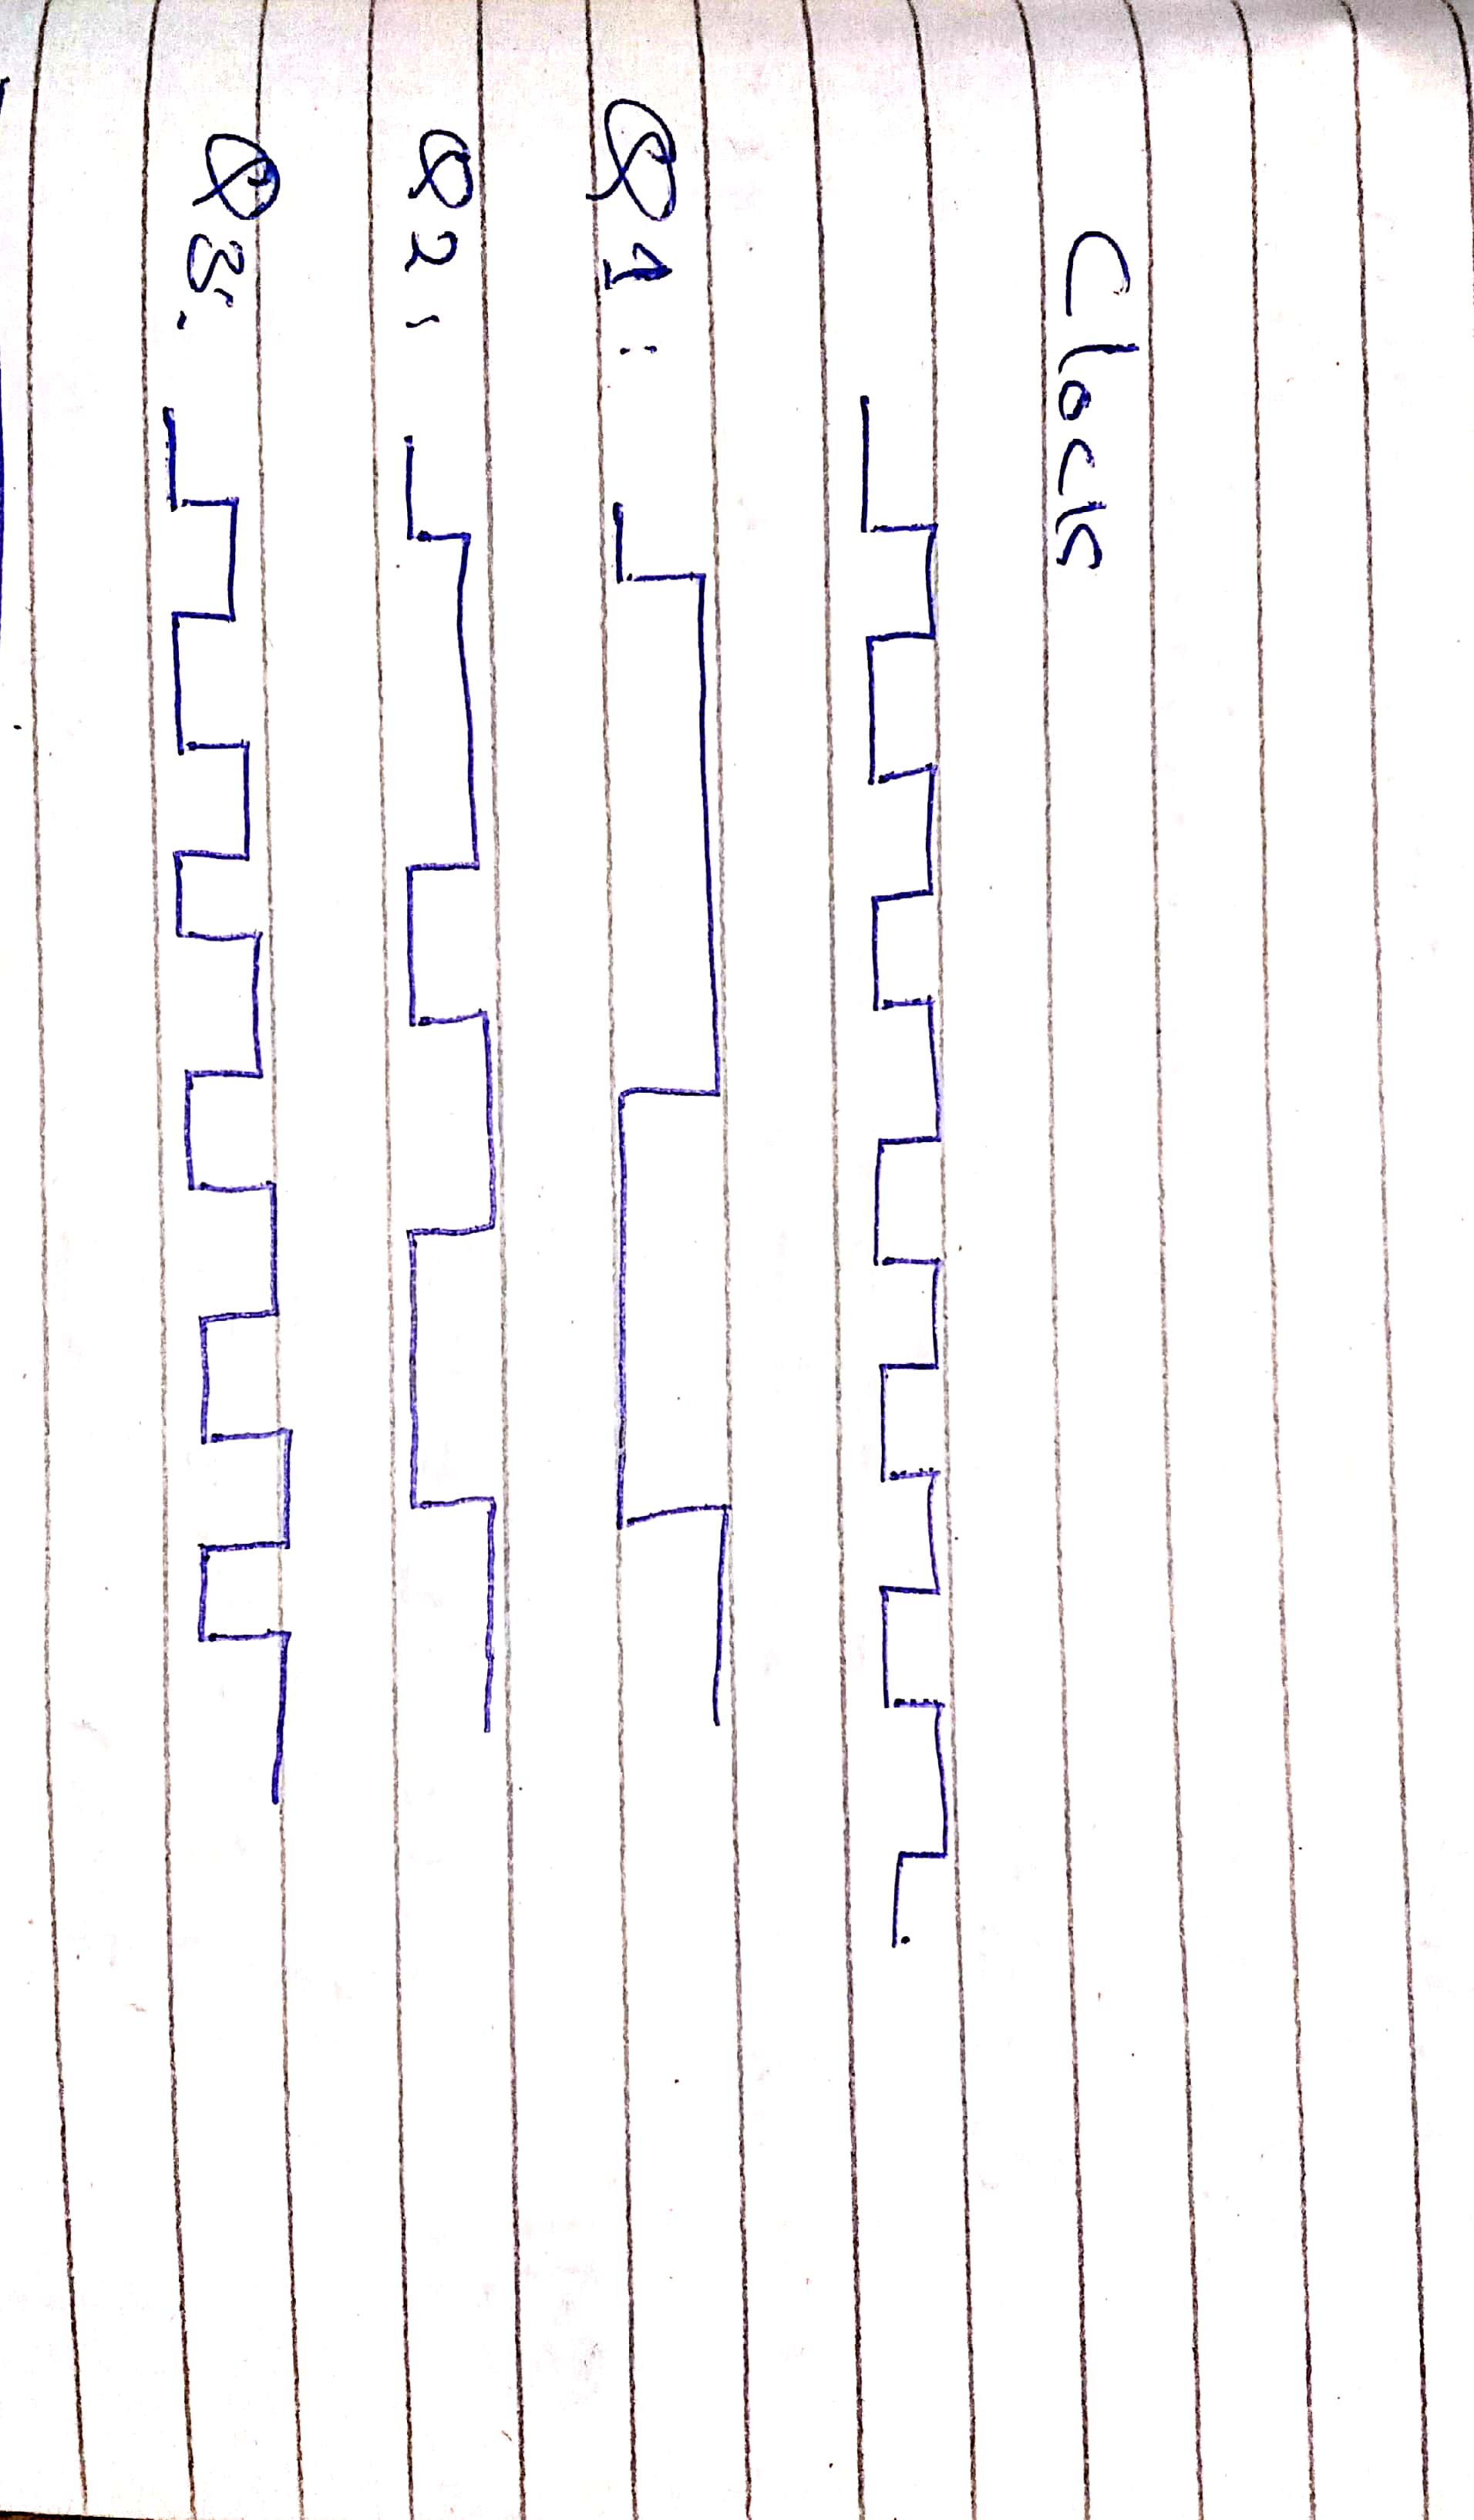 Clock
Q1:
Q2:
Q3: